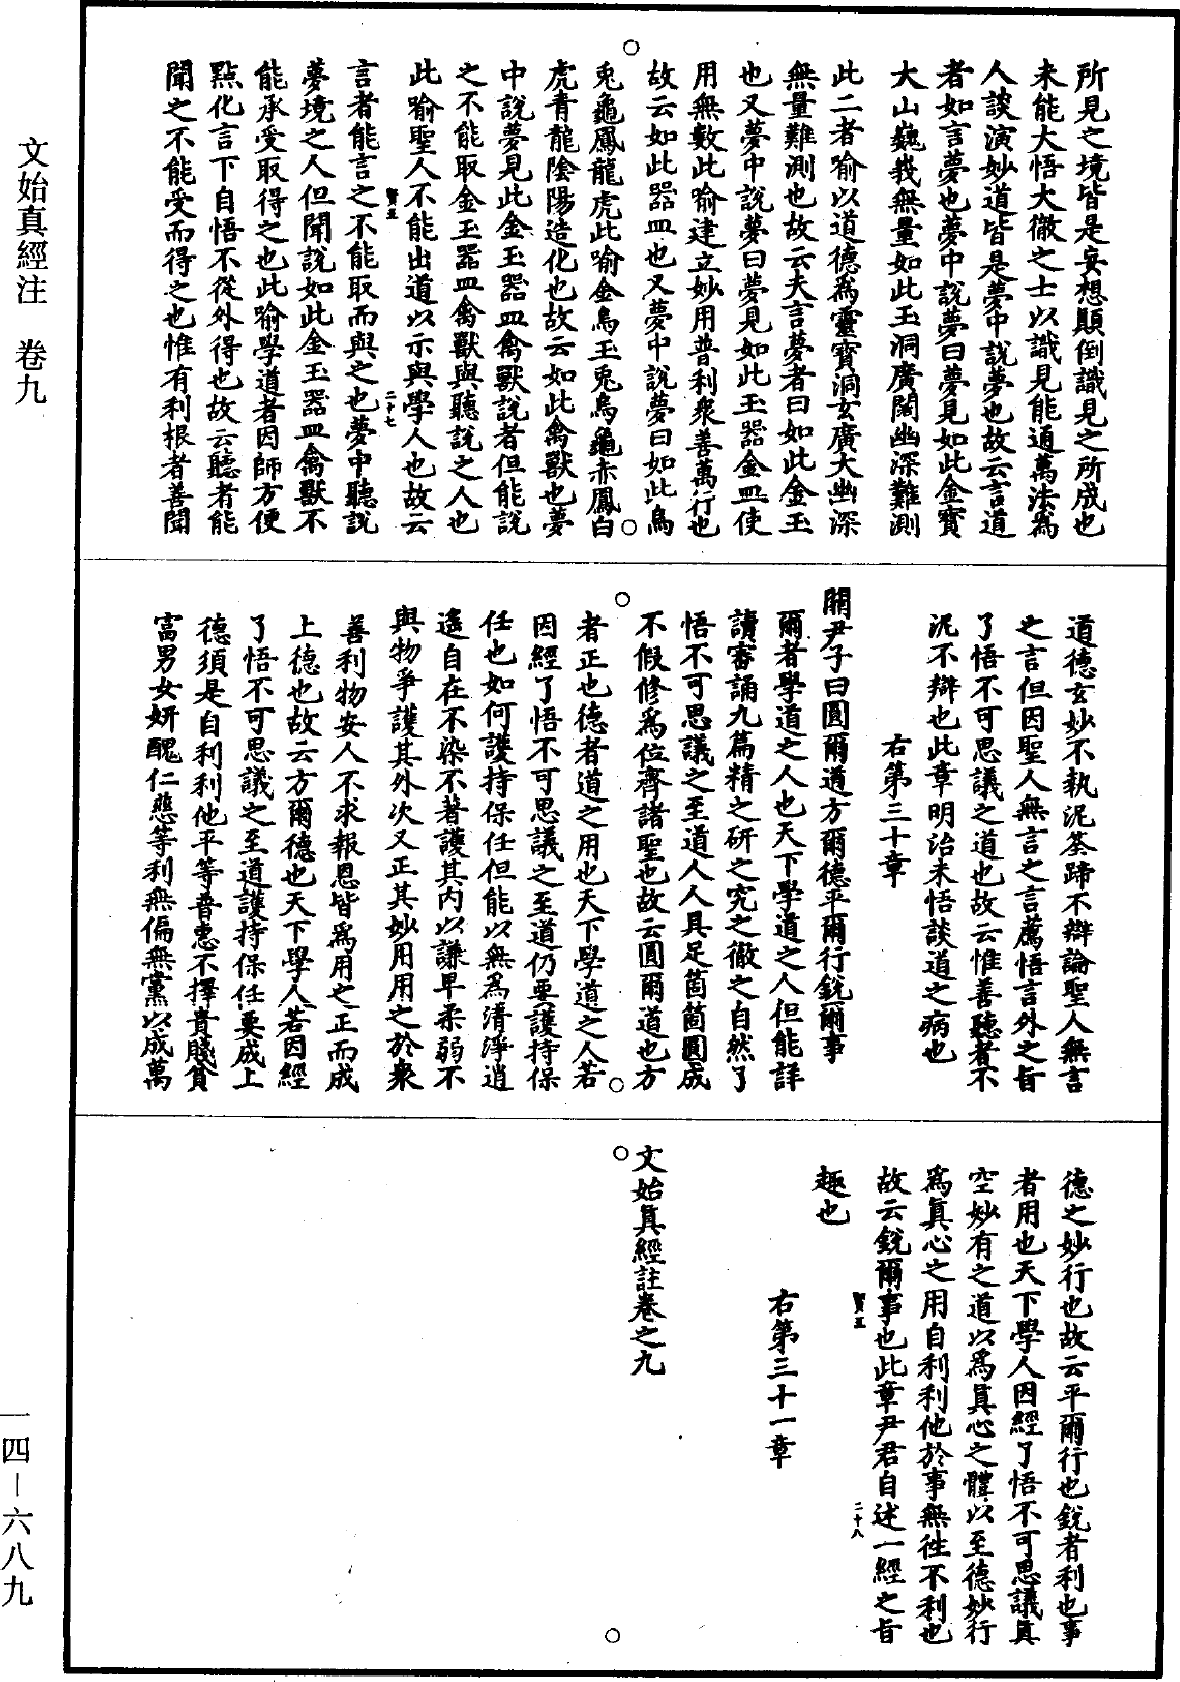 所見之境皆是妄想顛倒識見之所成也
未能大悟大徹之士以識見能通萬法為
人談演妙道皆是夢中說夢也故云言道
者如言夢也夢中說夢曰夢見如此金寶
大山巍峩無量如此玉洞廣闊幽深難測
此二者喻以道德為靈寶洞玄廣大幽深
無量難測也故云夫言夢者曰如此金玉
也又夢中說夢曰夢見如此玉器金皿使
用無數此喻建立妙用普利衆善萬行也
故云如此器皿也又夢中說夢曰如此烏
兎龜鳳龍虎此喻金烏玉兎烏龜赤鳳白
虎青龍陰陽造化也故云如此禽獸也夢
中說夢見此金玉器皿禽獸說者但能說
之不能取金玉器皿禽獸與聽說之人也
此喻聖人不能出道以示與學人也故云
賢五
二十七
言者能言之不能取而與之也夢中聽說
夢境之人但聞說如此金玉器皿禽獸不
能承受取得之也此喻學道者因師方便
點化言下自悟不從外得也故云聽者能
聞之不能受而得之也惟有利根者善聞
道德玄妙不執泥筌蹄不辯論聖人無言
之言但因聖人無言之言薦悟言外之旨
了悟不可思議之道也故云惟善聽者不
泥不辯也此章明治未悟談道之病也
右第三十章
關尹子曰圓爾道方爾德平爾行銳爾事
爾者學道之人也天下學道之人但能詳
讀審誦九篇精之研之究之徹之自然了
悟不可思議之至道人人具足箇箇圓成
不假修為位齊諸聖也故云圓爾道也方
者正也德者道之用也天下學道之人若
因經了悟不可思議之至道仍要護持保
任也如何護持保任但能以無為清淨逍
遙自在不染不著護其內以謙卑柔弱不
與物爭護其外次又正其妙用用之於衆
善利物安人不求報恩皆為用之正而成
上德也故云方爾德也天下學人若因經
了悟不可思議之至道護持保任要成上
德須是自利利他平等普惠不擇貴賤貧
富男女妍醜仁慈等利無偏無黨以成萬
德之妙行也故云平爾行也銳者利也事
者用也天下學人因經了悟不可思議真
空妙有之道以為真心之體以至德妙行
為真心之用自利利他於事無徃不利也
故云銳爾事也此章尹君自述一經之旨
賢五
二十八
趣也
右第三十一章
文始真經註卷之九
文始真經注 卷九
一四－六八九